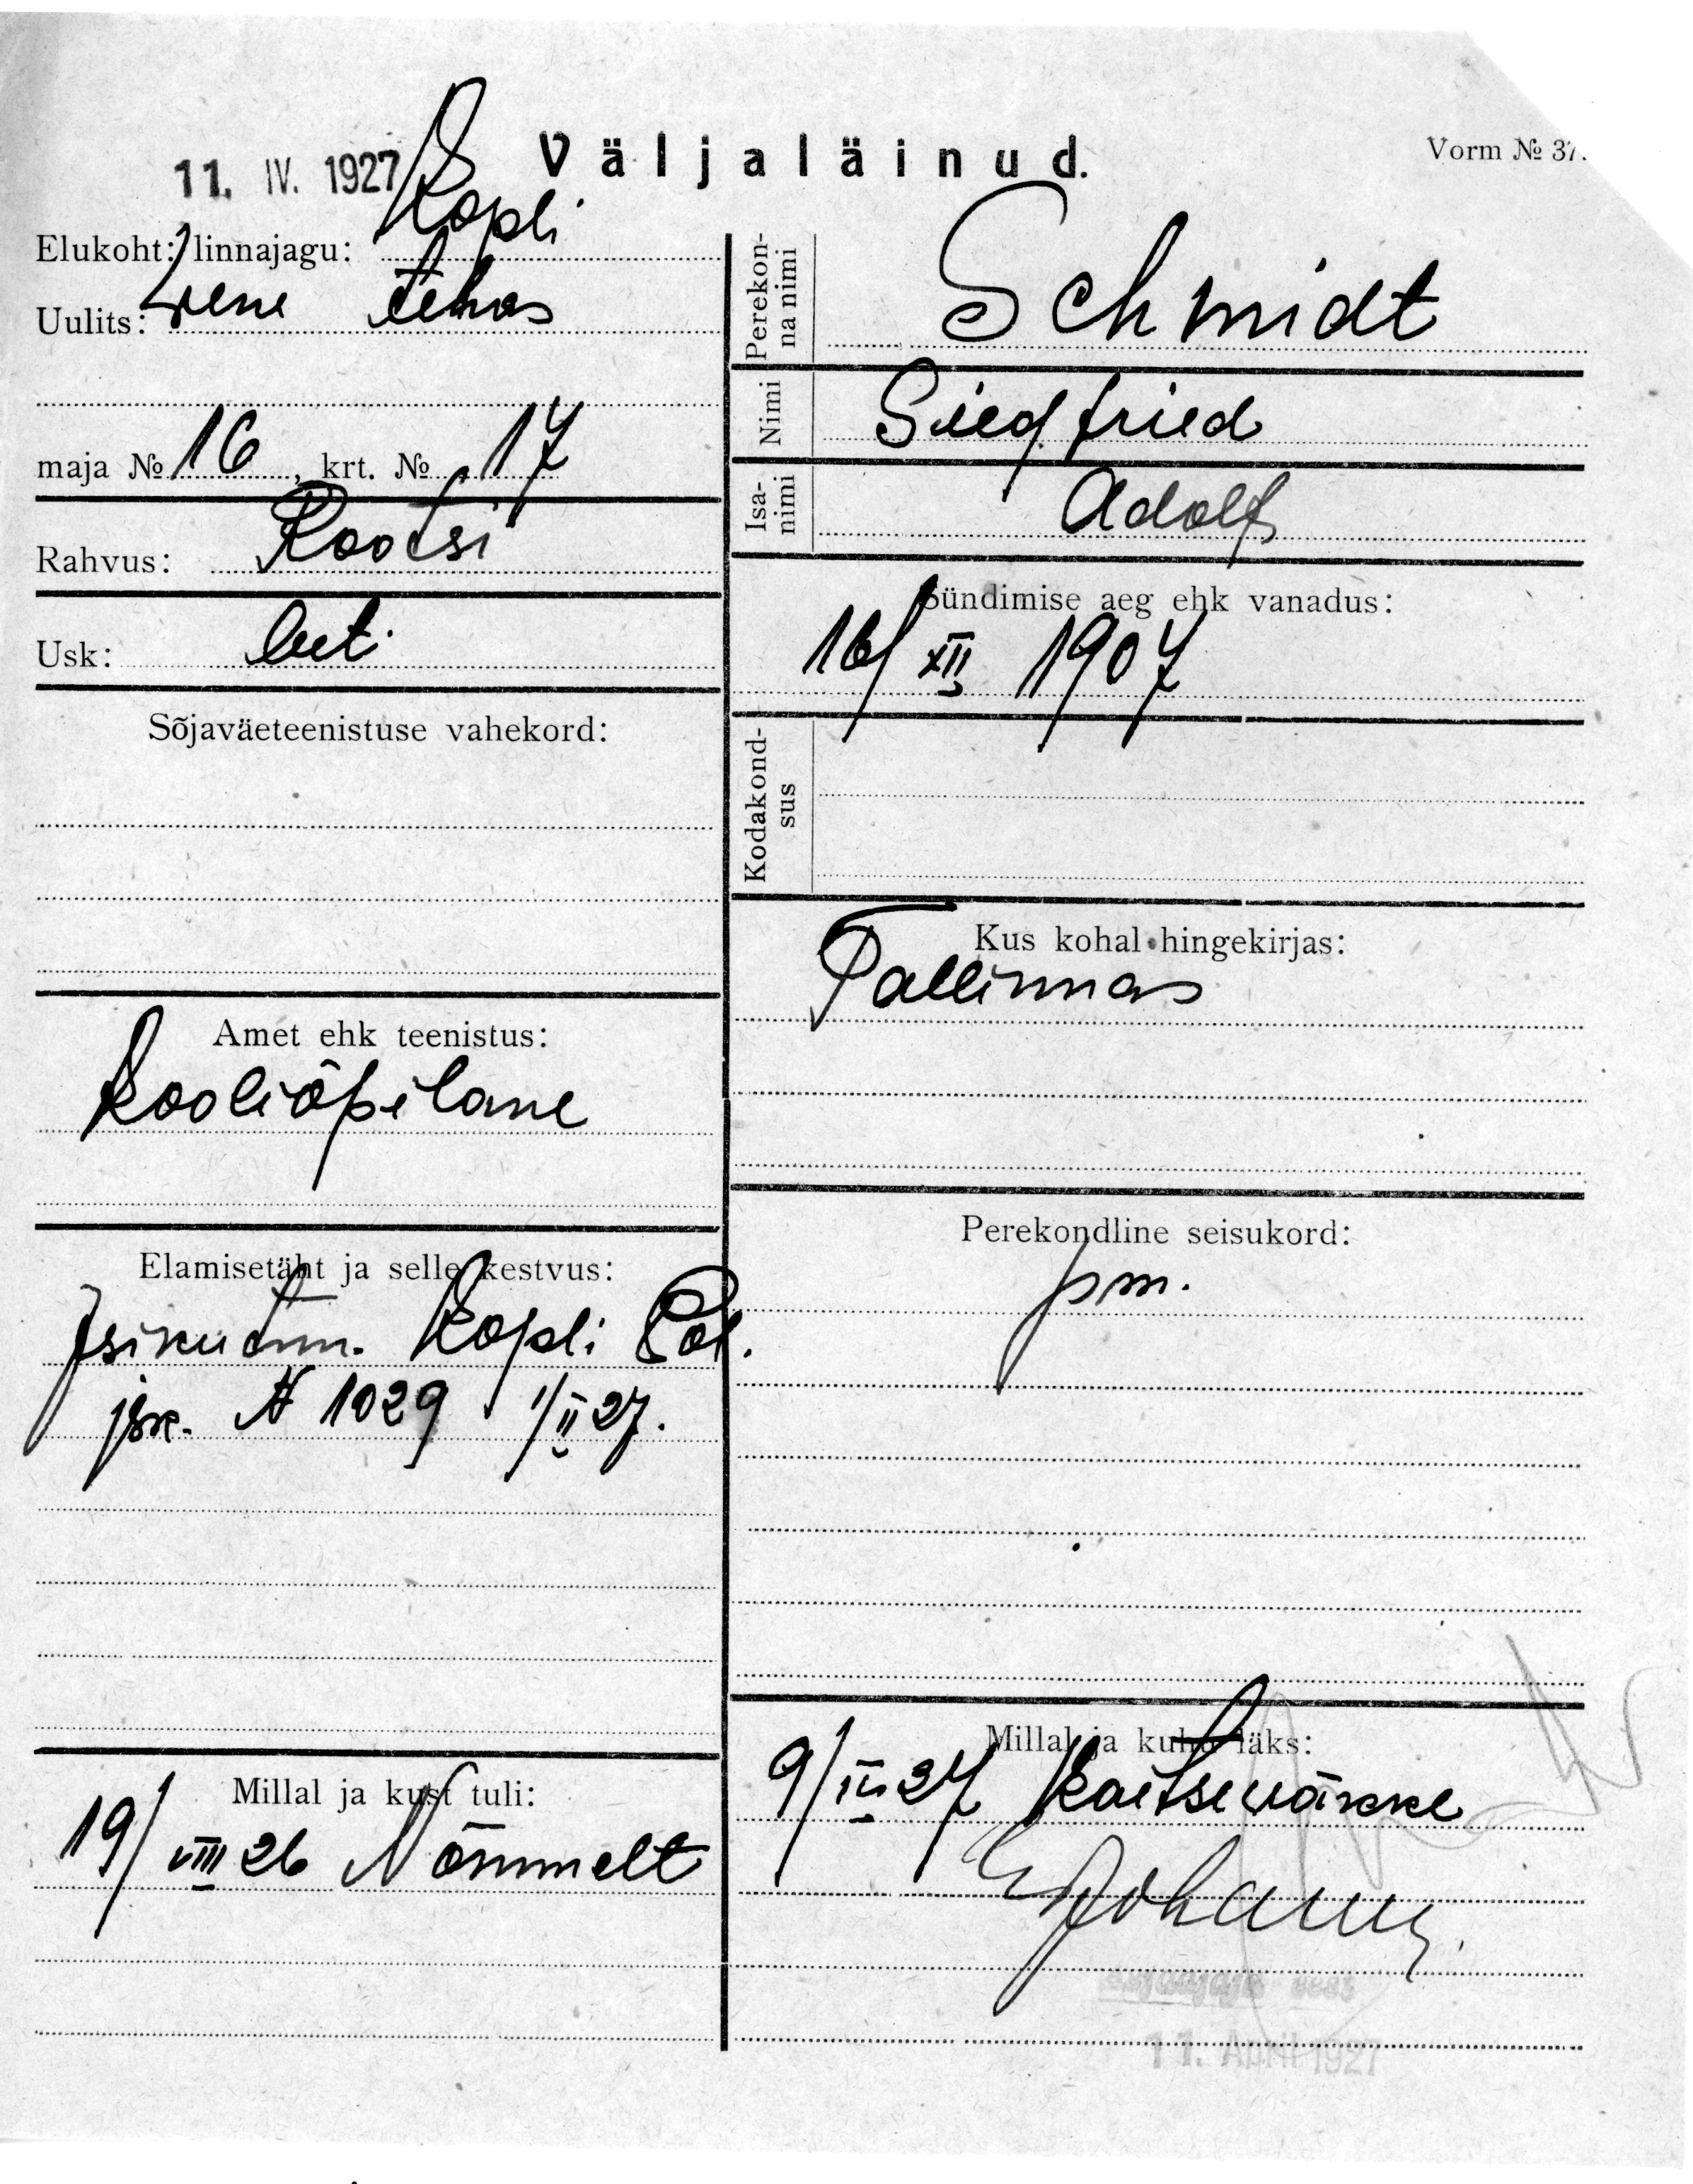 11. IV. 1927
Väljaläinud.
Vorm № 37.
Elukoht: linnajagu: Kopli
Uulits: Vene tehas
maja № 16, krt. № 17
Rahvus: Rootsi
Usk: lut.
Sõjaväeteenistuse vahekord:
Amet ehk teenistus:
kooliõpilane
Elamisetäht ja selle kestvus:
Isikutun. Kopli Pol.
jsk. № 1029 1/II 27.
Millal ja kust tuli:
19/VIII 26 Nõmmelt
Perekonna nimi
Schmidt
Nimi
Siegfried
Isanimi
Adolf
Sündimise aeg ehk vanadus:
16/XII 1907
Kodakondsus
Kus kohal hingekirjas:
Tallinnas
Perekondline seisukord:
pm.
Millal ja kuhu läks:
9/III 27 Kaitseväkke
11. April 1927